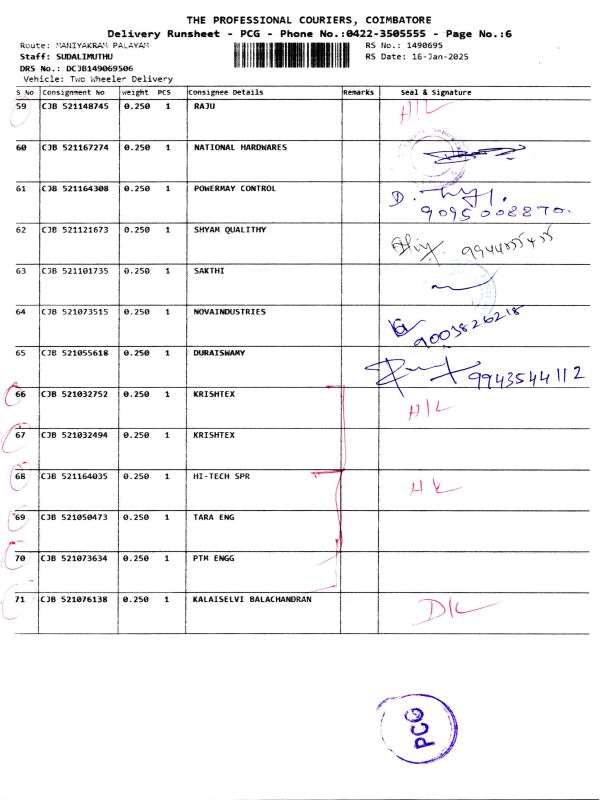 THE PROFESSIONAL COURIERS, COIMBATORE
Delivery Runsheet - PCG - Phone No.:0422-3505555 - Page No.:6
Route: MANIYAKRAM PALAYAM
RS No.: 1490695
Staff: SUDALIMUTHU
RS Date: 16-Jan-2025
DRS No.: DCJB149069506
Vehicle: Two Wheeler Delivery
S No Consignment No Weight PCS Consignee Details Remarks Seal & Signature
59 CJB 521148745 0.250 1 RAJU
60 CJB 521167274 0.250 1 NATIONAL HARDWARES
61 CJB 521164308 0.250 1 POWERMAY CONTROL
9095008870.
62 CJB 521121673 0.250 1 SHYAM QUALITHY
63 CJB 521101735 0.250 1 SAKTHI
64 CJB 521073515 0.250 1 NOVAINDUSTRIES
9003826218
65 CJB 521055618 0.250 1 DURAISWAMY
9943544112
66 CJB 521032752 0.250 1 KRISHTEX
67 CJB 521032494 0.250 1 KRISHTEX
68 CJB 521164035 0.250 1 HI-TECH SPR
69 CJB 521050473 0.250 1 TARA ENG
70 CJB 521073634 0.250 1 PTM ENGG
71 CJB 521076138 0.250 1 KALAISELVI BALACHANDRAN D/L
PCG